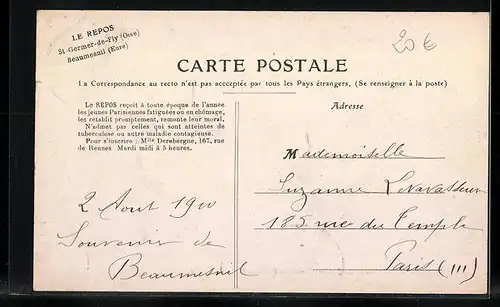 LE REPOS
St-Germer-de-Fly (Oise)
Beaumesnil (Eure)
20 €
CARTE POSTALE
La Correspondance au recto n'est pas acceptée par tous les Pays étrangers, (Se renseigner à la poste)
Le REPOS reçoit à toute époque de l'année
les jeunes Parisiennes fatiguées ou en chômage,
les rétablit promptement, remonte leur moral.
N'admet pas celles qui sont atteintes de
tuberculose ou autre maladie contagieuse.
Pour s'inscrire : Mlle Derebergne, 167, rue
de Rennes Mardi midi à 5 heures.
2 Aout 1910
Souvenir de
Beaumesnil
Adresse
Mademoiselle
Suzanne Levavasseur
185 rue du Temple
Paris (III)